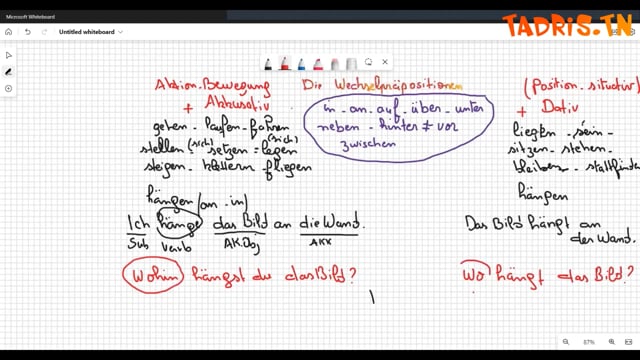 Microsoft Whiteboard
TADRIS.TN
Untitled whiteboard
Aktion-Bewegung
+ Akkusativ
gehen - laufen - fahren
stellen (sich) setzen = legen (sich)
steigen - klettern - fliegen
hängen (an - in)
Ich hänge das Bild an die Wand.
Sub Verb AK.Obj AKK
Wohin hängst du das Bild?
Die Wechselpräpositionen
in - an - auf - über - unter
neben - hinter ≠ vor
zwischen
(Position - situativ)
+ Dativ
liegen - sein -
sitzen - stehen -
bleiben - stattfinden
hängen
Das Bild hängt an
der Wand.
Wo hängt das Bild?
87%